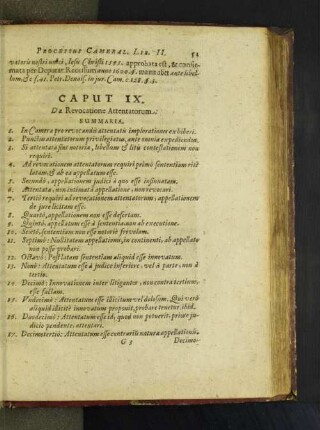 PROCESSUS CAMERAL. LIB. II. 54
vatoris nostri unici, Jesu Christi 1595. approbata est, & confir-
mata per Deputat: Recessum anno 1600.
CAPUT IX.
De Revocatione Attentatorum.
SUMMARIA.
1. In Camera pro revocandis attentatis implorationes exhiberi.
2. Punctum attentatorum privilegiatum, ante omnia expediendum.
3. Si attentata sint notoria, libellum & litis contestationem non
requiri.
4. Ad revocationem attentatorum requiri primò sententiam esse
latam: & ab ea appellatum esse.
5. Secundò, appellationem judici à quo esse insinuatam.
6. Attentata, non intimatâ appellatione, non revocari.
7. Tertiò requiri ad revocationem attentatorum: appellationem
de jure licitam esse.
8. Quartò, appellationem non esse desertam.
9. Quintò, appellatum esse à sententia non ab executione.
10. Sextò, sententiam non esse notoriè frivolam.
11. Septimò: Nullitatem appellationis, in continenti, ab appellato
non posse probari.
12. Octavò: Post latam sententiam aliquid esse innovatum.
13. Nonò: Attentatum esse à judice inferiore: vel à parte: non à
tertio.
14. Decimò: Innovationem inter litigantes, non contra tertium,
esse factam.
15. Undecimò: Attentatum esse illicitum vel dolosum. Qui verò
aliquid licitè innovatum proponit, probare tenetur ibid.
16. Duodecimò: Attentatum esse id, quod non potuerit, priore ju-
dicio pendente, attentari.
17. Decimotertiò: Attentatum esse contrarium natura appellationis.
G 3 Decimo-